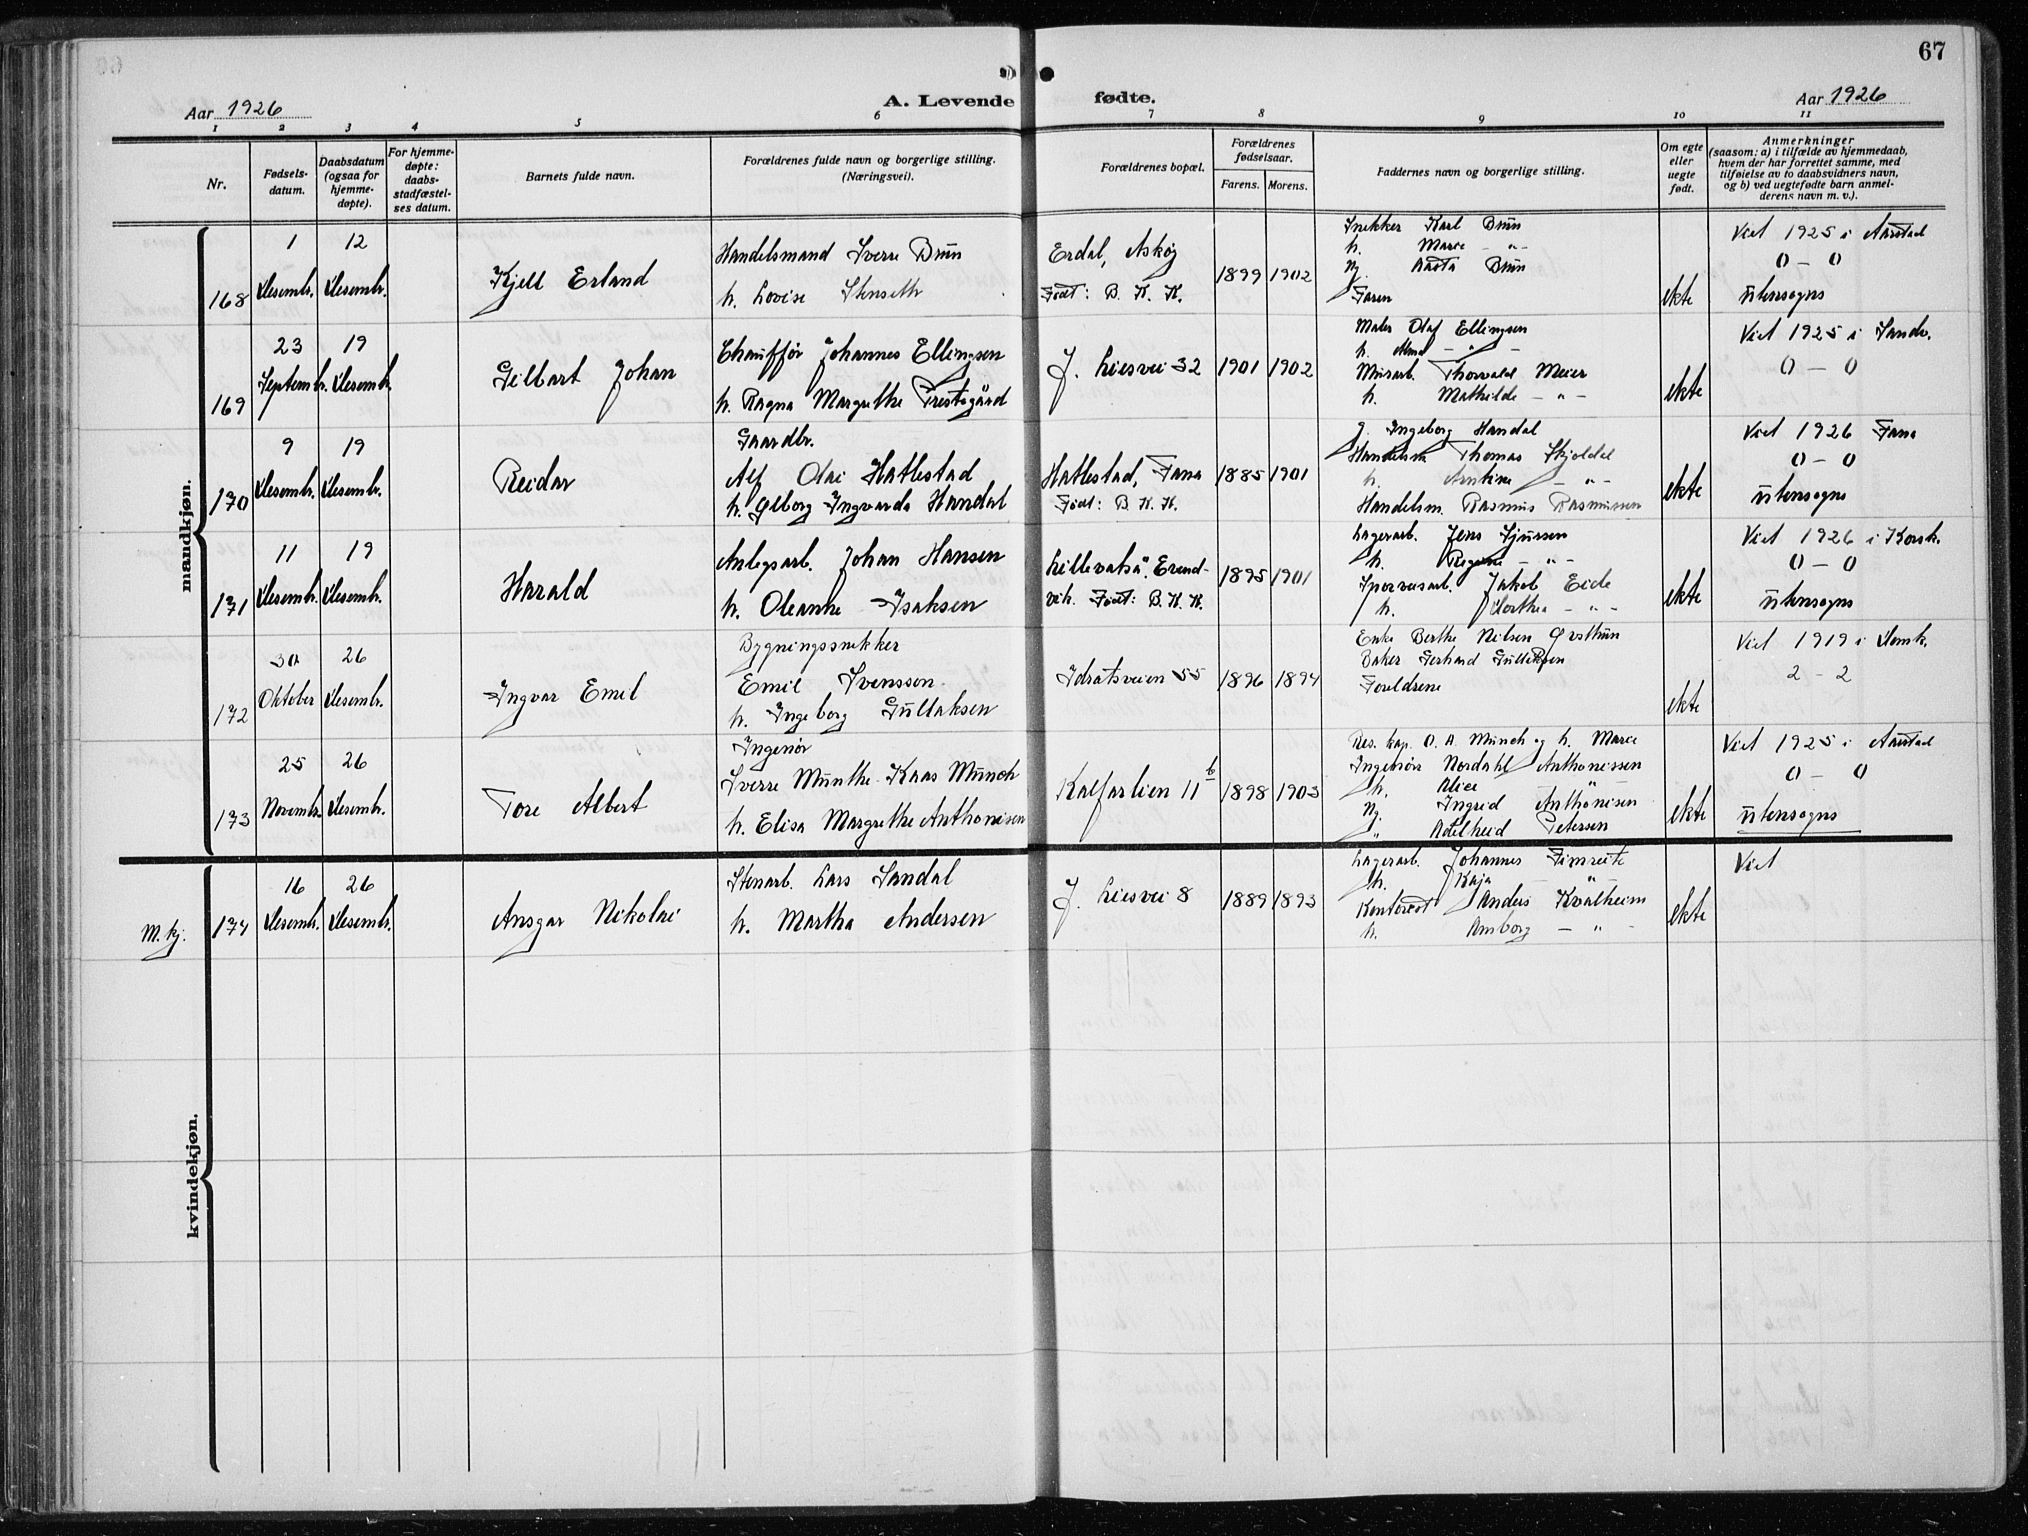 67
Aar 1926
A. Levende fødte.
Aar 1926
1 2 3 4 5 6 7 8 9 10 11
Nr.
Fødsels-
datum.
Daabsdatum
(ogsaa for
hjemme-
døpte).
For hjemme-
døpte:
daabs-
stadfæstel-
ses datum.
Barnets fulde navn.
Forældrenes fulde navn og borgerlige stilling.
(Næringsvei).
Forældrenes bopæl.
Forældrenes
fødselsaar.
Farens. Morens.
Faddernes navn og borgerlige stilling.
Om egte
eller
uegte
født.
Anmerkninger
(saasom: a) i tilfælde av hjemmedaab,
hvem der har forrettet samme, med
tilføielse av to daabsvidners navn,
og b) ved uegtefødte barn anmel-
derens navn m. v.).
mandkjøn.
168
1
Desembr.
12
Desembr.
Kjell Erland
Handelsmand Sverre Brun
h. Lovise Stenseth
Erdal, Askøy
Født: B. K. K.
1899 1902
Snekker Karl Brun
h. Marie - " -
Ny. Aasta Brun
Faren
ekte
Viet 1925 i Aarstad
0 - 0
utensogns
169
23
Septembr.
19
Desembr.
Gilbart Johan
Chauffør Johannes Ellingsen
h. Ragna Margrethe Prestegård
J. Liesvei 32
1901 1902
Maler Olaf Ellingsen
h. Alma - " -
Murarb. Thorvald Meier
h. Mathilde - " -
ekte
Viet 1925 i Sandv.
0 - 0
170
9
Desembr.
19
Desembr.
Reidar
Gaardbr.
Alf Olai Hatlestad
h. Ølborg Ingvarda Handal
Hatlestad, Fana
Født: B. K. K.
1885 1901
g. Ingeborg Handal
Handelsm Thomas Skjoldal
h. Antine - " -
Handelsm. Rasmus Rasmussen
ekte
Viet 1926 Fana
0 - 0
utensogns
171
11
Desembr.
19
Desembr.
Harald
Anlegsarb. Johan Hansen
h. Oleanne Isaksen
Lillevatså, Evend-
vik. Født: B. K. K.
1895 1901
Lagerarb. Jens Sjursen
h. Regine - " -
Sporveisarb. Jakob Eide
h. Dorthea - " -
ekte
Viet 1926 i Korsk.
0 - 0
utensogns
172
30
Oktober
26
Desembr.
Ingvar Emil
Bygningssnekker
Emil Svensson
h. Ingeborg Gullaksen
Idrætsveien 55
1896 1894
Enke Berthe Nilsen Øvsthun
Baker Gerhard Gulleksen
Foreldrene
ekte
Viet 1919 i Domk.
2 - 2
173
25
Novembr.
26
Desembr.
Tore Albert
Ingeniør
Sverre Munthe-Kaas Munch
h. Elisa Margrethe Anthonisen
Kalfarlien 11 b
1898 1903
Res. kap. O. A. Munch og h. Marie
Ingeniør Nordahl Anthonissen
h. Alice "
Ny. Ingrid Anthonisen
" Adelheid Petersen
ekte
Viet 1925 i Aarstad
0 - 0
utensogns
kvindekjøn.
M. kj.
174
16
Desembr.
26
Desembr.
Ansgar Nikolai
Stenarb. Lars Sandal
h. Martha Andersen
J. Liesvei 8
1889 1893
Lagerarb. Johannes Fimreite
h. Kaja - " -
Kontorist Anders Kvalheim
h. Amborg - " -
ekte
Viet